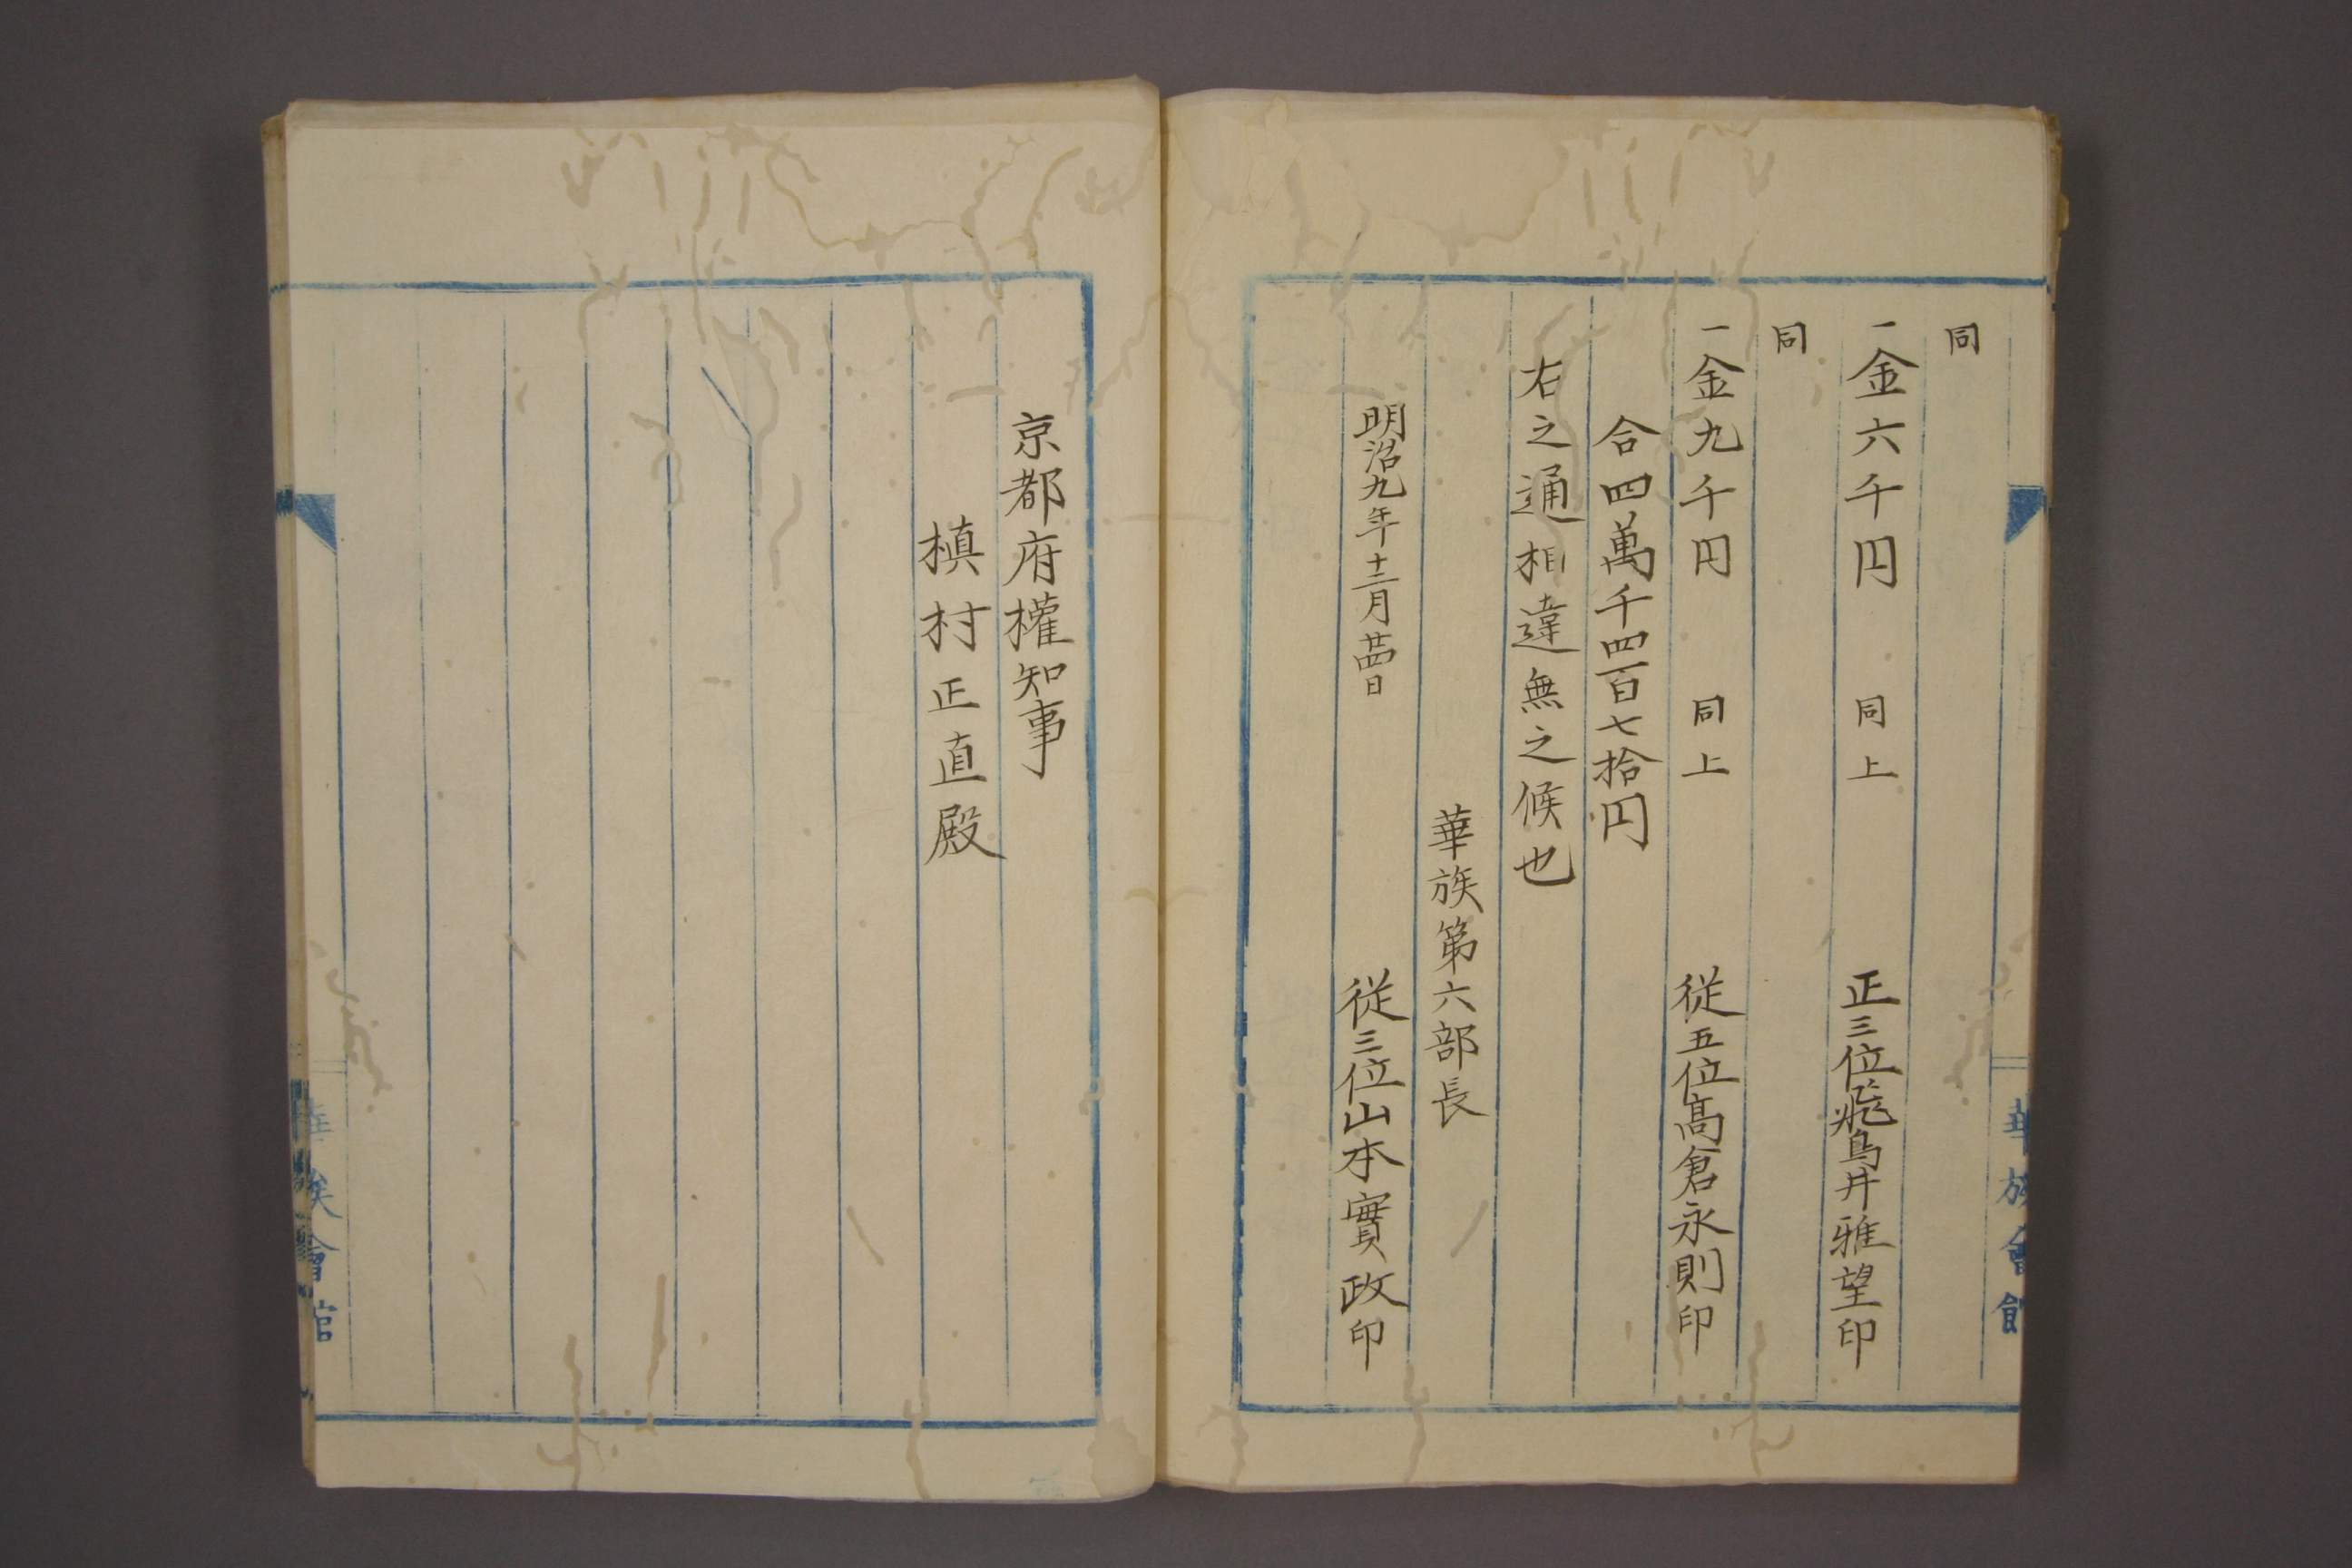 同
一金六千円 同上 正三位飛鳥井雅望印
同
一金九千円 同上 従五位髙倉永則印
合四萬千四百七拾円
右之通相違無之候也
華族第六部長
明治九年十二月廿四日 従三位山本實政印
華族會館
京都府權知事
槙村正直殿
華族會館